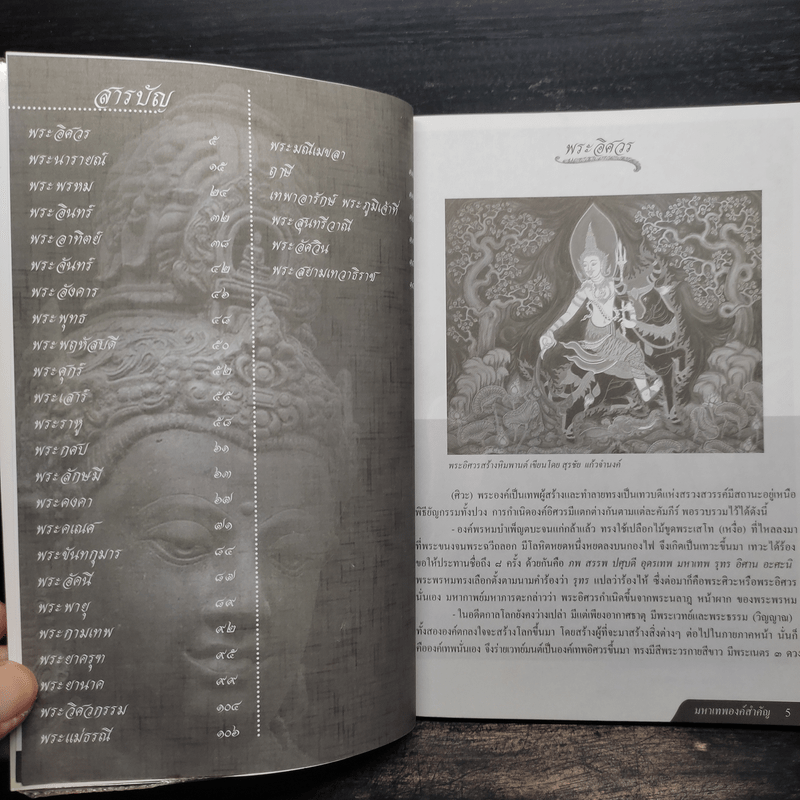 สารบัญ
พระอิศวร ๕
พระนารายณ์ ๑๕
พระพรหม ๒๔
พระอินทร์ ๓๒
พระอาทิตย์ ๓๘
พระจันทร์ ๔๒
พระอังคาร ๔๖
พระพุทธ ๔๘
พระพฤหัสบดี ๕๐
พระศุกร์ ๕๒
พระเสาร์ ๕๕
พระราหู ๕๘
พระเกตุ ๖๑
พระลักษมี ๖๓
พระคงคา ๖๗
พระคเณศ ๗๑
พระขันทกุมาร ๘๔
พระอัคนี ๘๗
พระพาย ๘๙
พระกามเทพ ๙๒
พระยาครุฑ ๙๕
พระยานาค ๙๙
พระวิศวกรรม ๑๐๔
พระแม่ธรณี ๑๐๖
พระมณีเมขลา
ฤาษี
เทพาอารักษ์ พระภูมิเจ้าที่
พระสุนทรีวาณี
พระอัศวิน
พระสยามเทวาธิราช
พระอิศวร
พระอิศวรสร้างหิมพานต์ เขียนโดย สุรชัย แก้วจำนงค์
(ศิวะ) พระองค์เป็นเทพผู้สร้างและทำลายทรงเป็นเทวบดีแห่งสรวงสวรรค์มีสถานะอยู่เหนือ
พิธีอัญกรรมทั้งปวง การกำเนิดองค์อิศวรมีแตกต่างกันตามแต่ละคัมภีร์ พอรวบรวมไว้ได้ดังนี้
- องค์พรหมบำเพ็ญตบะจนแก่กล้าแล้ว ทรงใช้เปลือกไม้ขูดพระเสโท (เหงื่อ) ที่ไหลลงมา
ที่พระขนงจนพระฉวีถลอก มีโลหิตหยดหนึ่งหยดลงบนกองไฟ จึงเกิดเป็นเทวะขึ้นมา เทวะได้ร้อง
ขอให้ประทานชื่อถึง ๘ ครั้ง ด้วยกันคือ ภพ สรรพ ปศุบดี อุตรเทพ มหาเทพ รุทร อิศาน อะศะนิ
พระพรหมทรงเลือกตั้งตามนามคำร้องว่า รุทร แปลว่าร้องไห้ ซึ่งต่อมาก็คือพระศิวะหรือพระอิศวร
นั่นเอง มหากาพย์มหาการตะกล่าวว่า พระอิศวรกำเนิดขึ้นจากพระนลาฏ หน้าผาก ของพระพรหม
- ในอดีตกาลโลกยังคงว่างเปล่า มีแต่เพียงอากาศธาตุ มีพระเวทย์และพระธรรม (วิญญาณ)
ทั้งสององค์ตกลงใจจะสร้างโลกขึ้นมา โดยสร้างผู้ที่จะมาสร้างสิ่งต่างๆ ต่อไปในภายภาคหน้า นั่นก็
คือองค์เทพนั่นเอง จึงร่ายเวทย์มนต์เป็นองค์เทพอิศวรขึ้นมา ทรงมีสีพระวรกายสีขาว มีพระเนตร ๓ ดวง
มหาเทพองค์สำคัญ 5